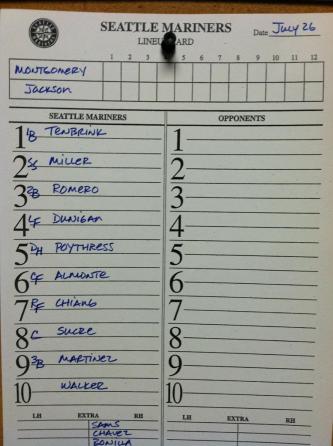 SEATTLE MARINERS
LINEUP CARD
Date July 26
1 2 3 4 5 6 7 8 9 10 11 12
MONTGOMERY
Jackson
SEATTLE MARINERS OPPONENTS
1 1B TENBRINK 1
2 SS MILLER 2
3 2B ROMERO 3
4 LF DUNIGAN 4
5 DH POYTHRESS 5
6 CF ALMONTE 6
7 RF CHIANG 7
8 C SUCRE 8
9 3B MARTINEZ 9
10 WALKER 10
LH EXTRA RH LH EXTRA RH
SAMS
CHAVEZ
BONILLA